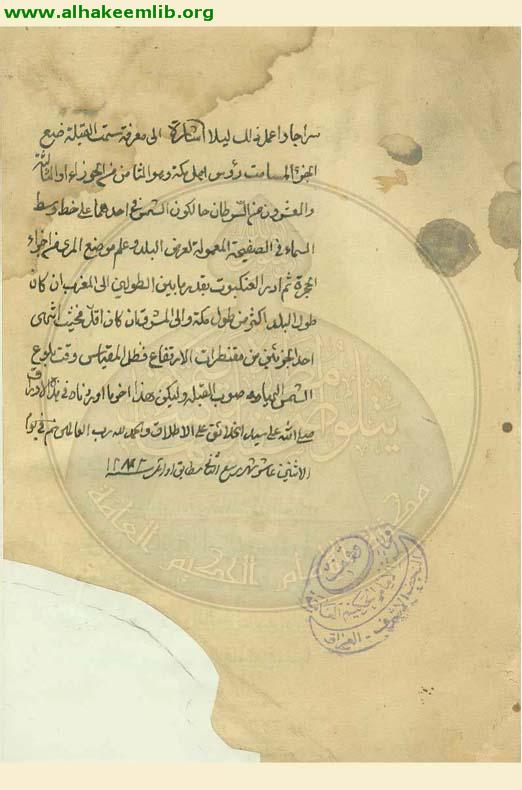 www.alhakeemlib.org
سراجا واعمل ذلك ليلا اشارة الى معرفة سمت القبلة ضع
الجزء المسامت رؤس اهل مكة وهو الثامن من الجوزاء او الثالثة
والعشرون من السرطان حال كون الشمس في احدهما على خط وسط
السماء في الصفيحة المعمولة لعرض البلد وعلم موضع المرى من اجزاء
الحجرة ثم ادر العنكبوت بقدر ما بين الطولين الى المغرب ان كان
طول البلد اكثر من طول مكة والى المشرق ان كان اقل فحيث انتهى
احد الجزئين من مقنطرات الارتفاع فظل المقياس وقت بلوغ
الشمس اليها صوب القبلة وليكن هذا اخر ما اوردناه في هذه الاوراق
صلى الله على سيد الخلائق على الاطلاق والحمد لله رب العالمين تم في يوم
الاثنين عاشر شهر ربيع مطابق اودئيل سنة
مكتبة الامام الحكيم العامة
النجف الاشرف - العراق